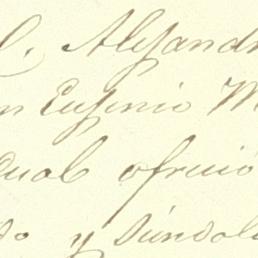 C. Alejandr
n Eugenio M
dual ofreció
do y siéndole